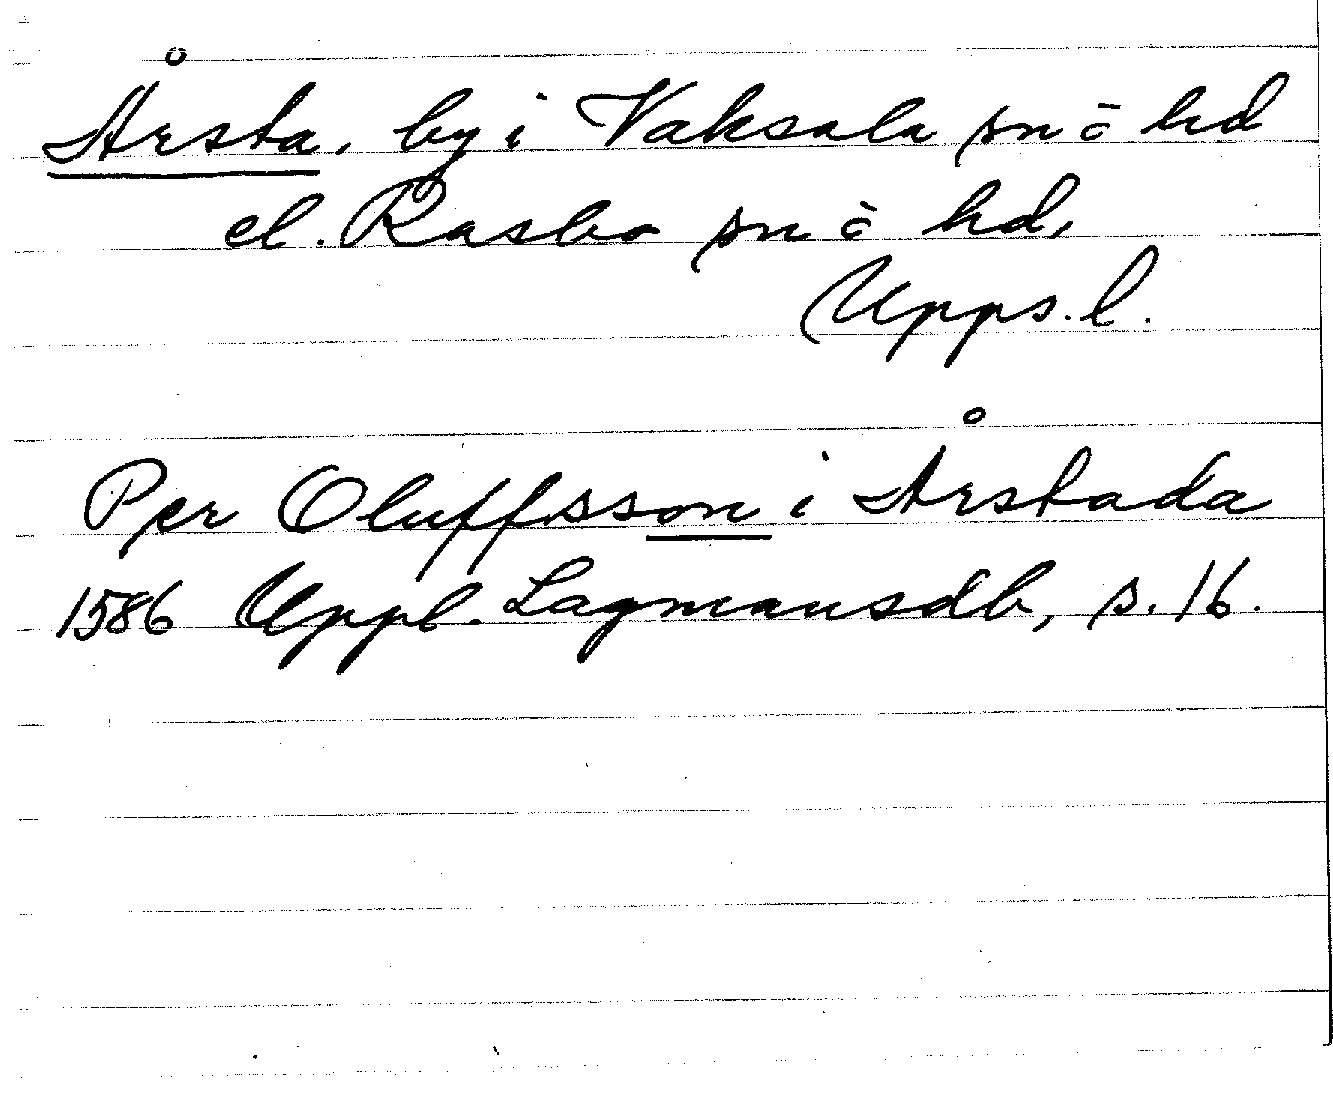 Årsta, by i Vaksala sn o hd
el. Rasbo sn o hd,
Upps. l.
Per Oluffsson i Årstada
1586 Uppl. Lagmansdb, s. 16.